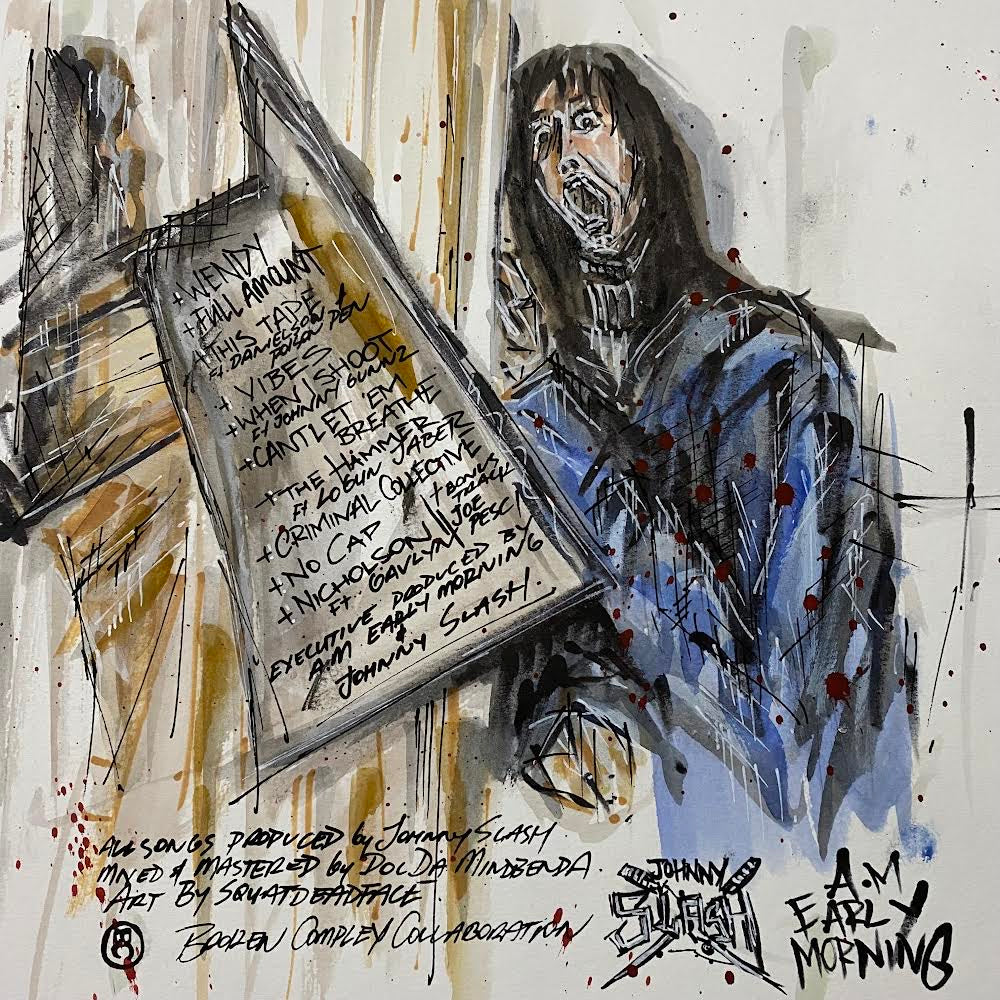 +WENDY
+FULL AMOUNT
+THIS TAPE
Ft. DANIELSON &
POIZN PEN
+VIBES
+WHEN I SHOOT
Ft JOHNNY GUNNZ
+CANT LET 'EM
BREATHE
+THE HAMMER
Ft LO GUN JABER
+CRIMINAL COLLECTIVE
+NO CAP
+NICHOLSON
FT. GAVLYN
+BONUS
TRACK
JOE
PESCI
EXECUTIVE PRODUCED BY
A.M EARLY MORNING
&
JOHNNY SLASH.
ALL SONGS PRODUCED by JOHNNY SLASH
MIXED & MASTERED by DOC DA MINDBENDA.
ART BY SQUATDEADFACE
BROKEN COMPLEX COLLABORATION
JOHNNY
SLASH
A.M
EARLY
MORNING